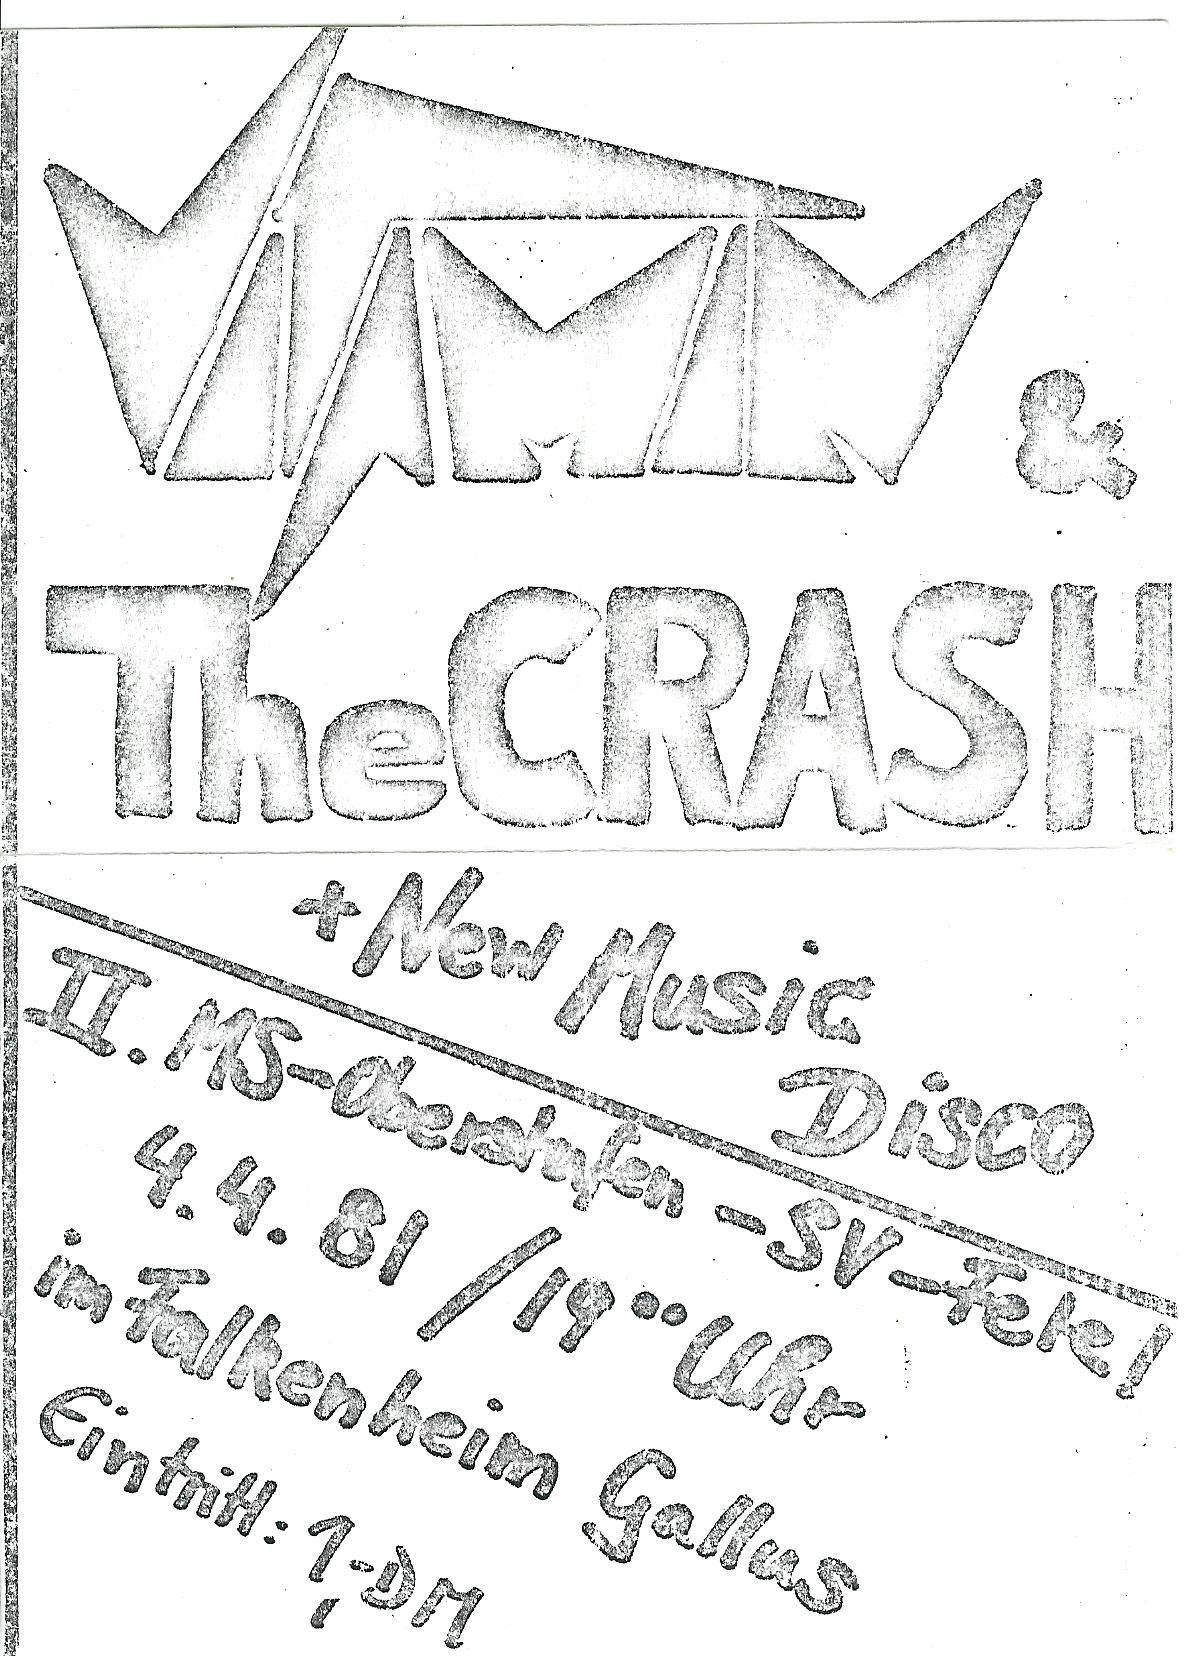 VITAMIN &
The CRASH
+ New Music
Disco
II. MS-Oberstufen-SV-Fete!
4.4.81/19°° Uhr
im Falkenheim Gallus
Eintritt: 1,-DM